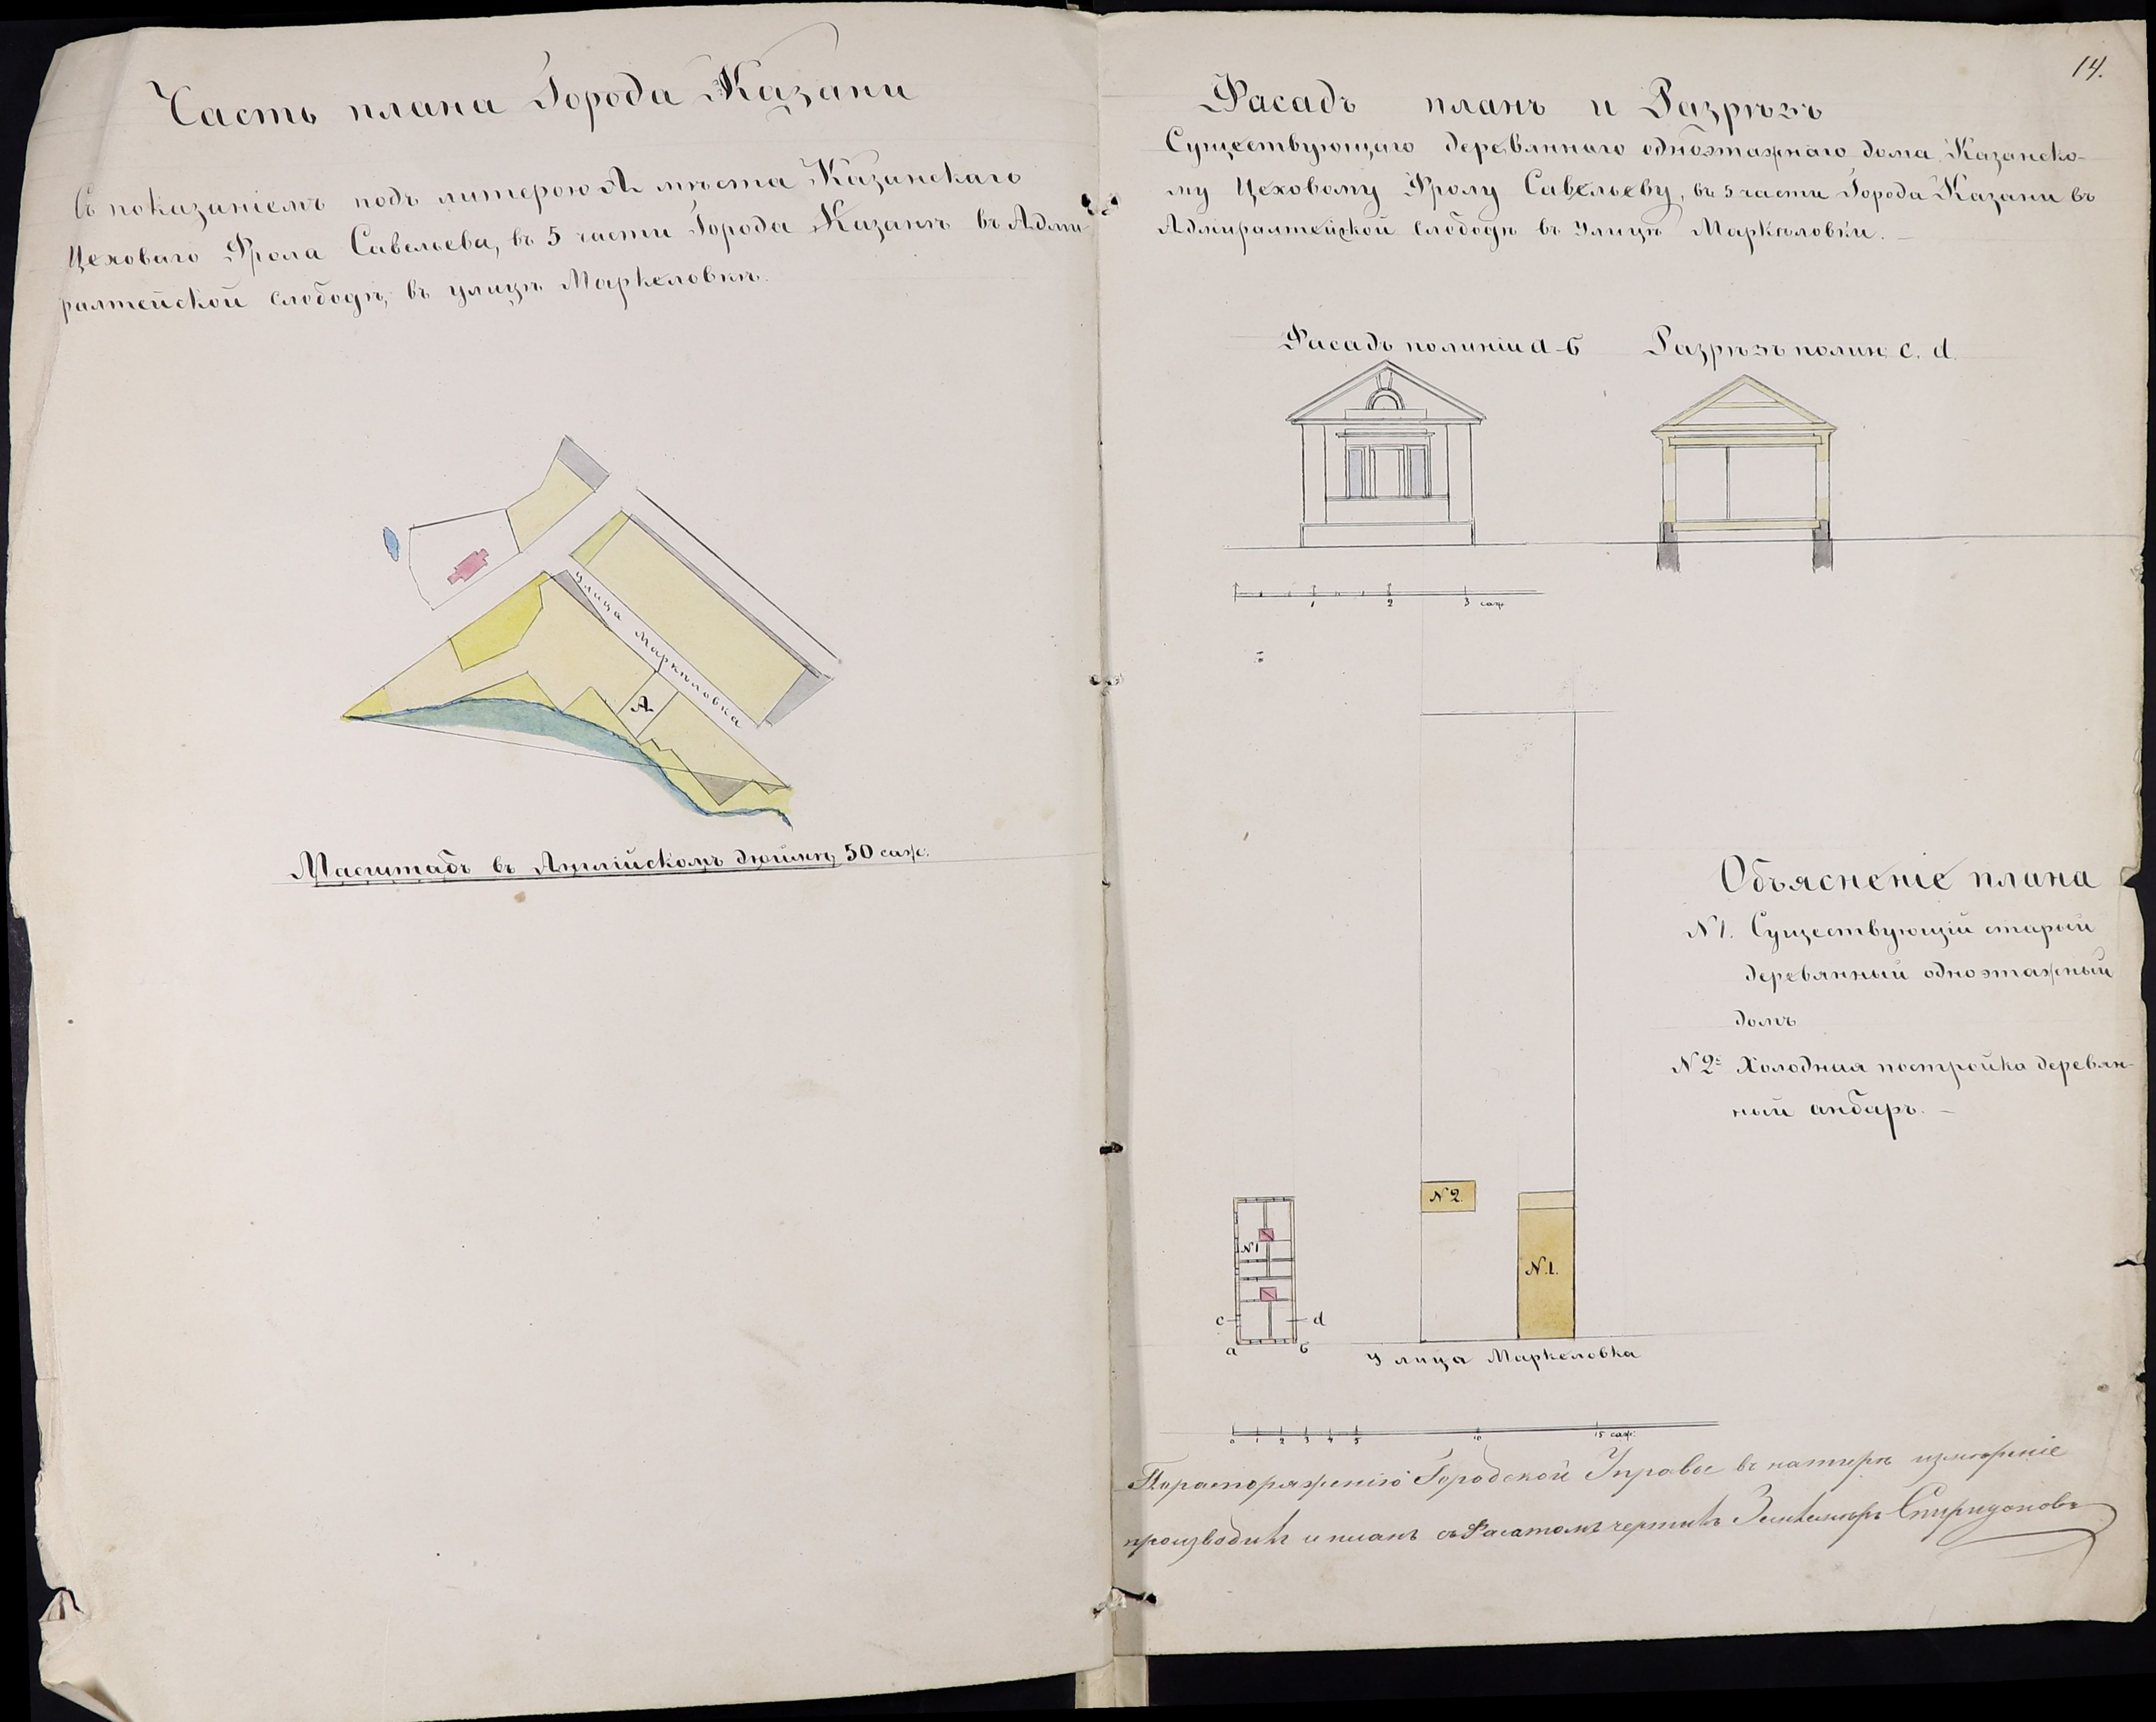 Часть плана Города Казани
Съ показаніемъ подъ литерою А мѣста Казанскаго
Цеховаго Фрола Савельева, въ 5 части Города Казани въ Адми-
ралтейской слободѣ, въ улицѣ Маркеловкѣ.
улица Маркѣловка
А
Масштабъ въ Англійскомъ дюймѣ 50 саж.
14.
Фасадъ планъ и Разрѣзъ
Существующаго деревяннаго одноэтажнаго дома Казанско-
му Цеховому Фролу Савельеву, въ 5 части Города Казани въ
Адмиралтейской слободѣ въ улицѣ Маркѣловки. —
Фасадъ по линіи а-б
Разрѣзъ по лин. c. d.
1 2 3 саж.
Объясненіе плана
N 1. Существующій старый
деревянный одноэтажный
домъ
N 2. Холодная постройка деревян-
ный анбаръ. —
N 2.
N 1
N.1.
c d
а б
Улица Маркеловка
0 1 2 3 4 5 10 15 саж.
По распоряженію Городской Управы въ натурѣ измѣреніе
производилъ и планъ съ Фасатомъ чертилъ Землемѣръ Спиридоновъ